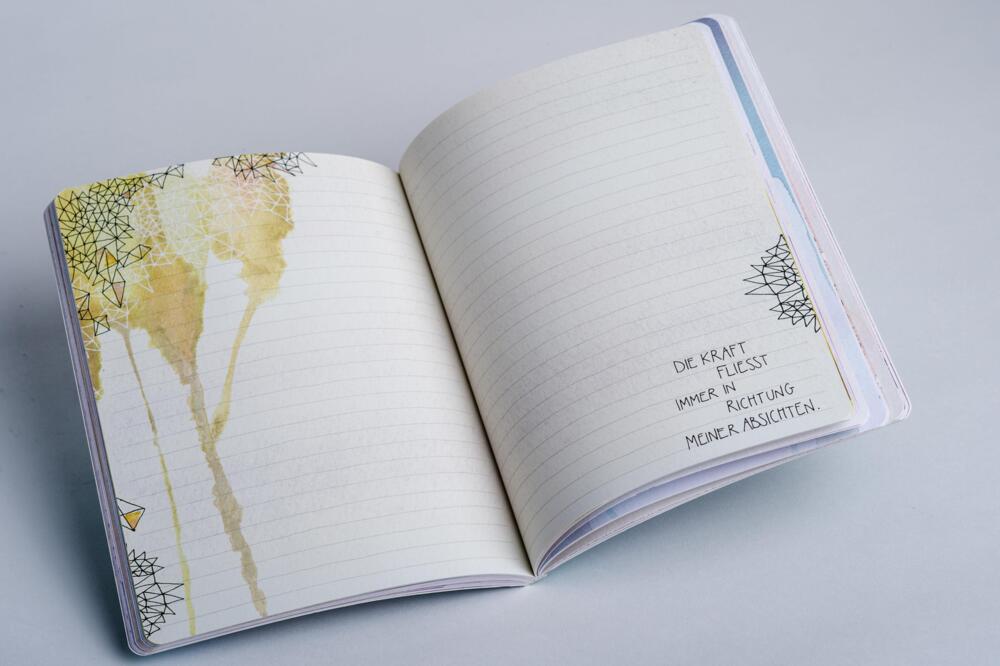 DIE KRAFT
FLIESST
IMMER IN
RICHTUNG
MEINER ABSICHTEN.